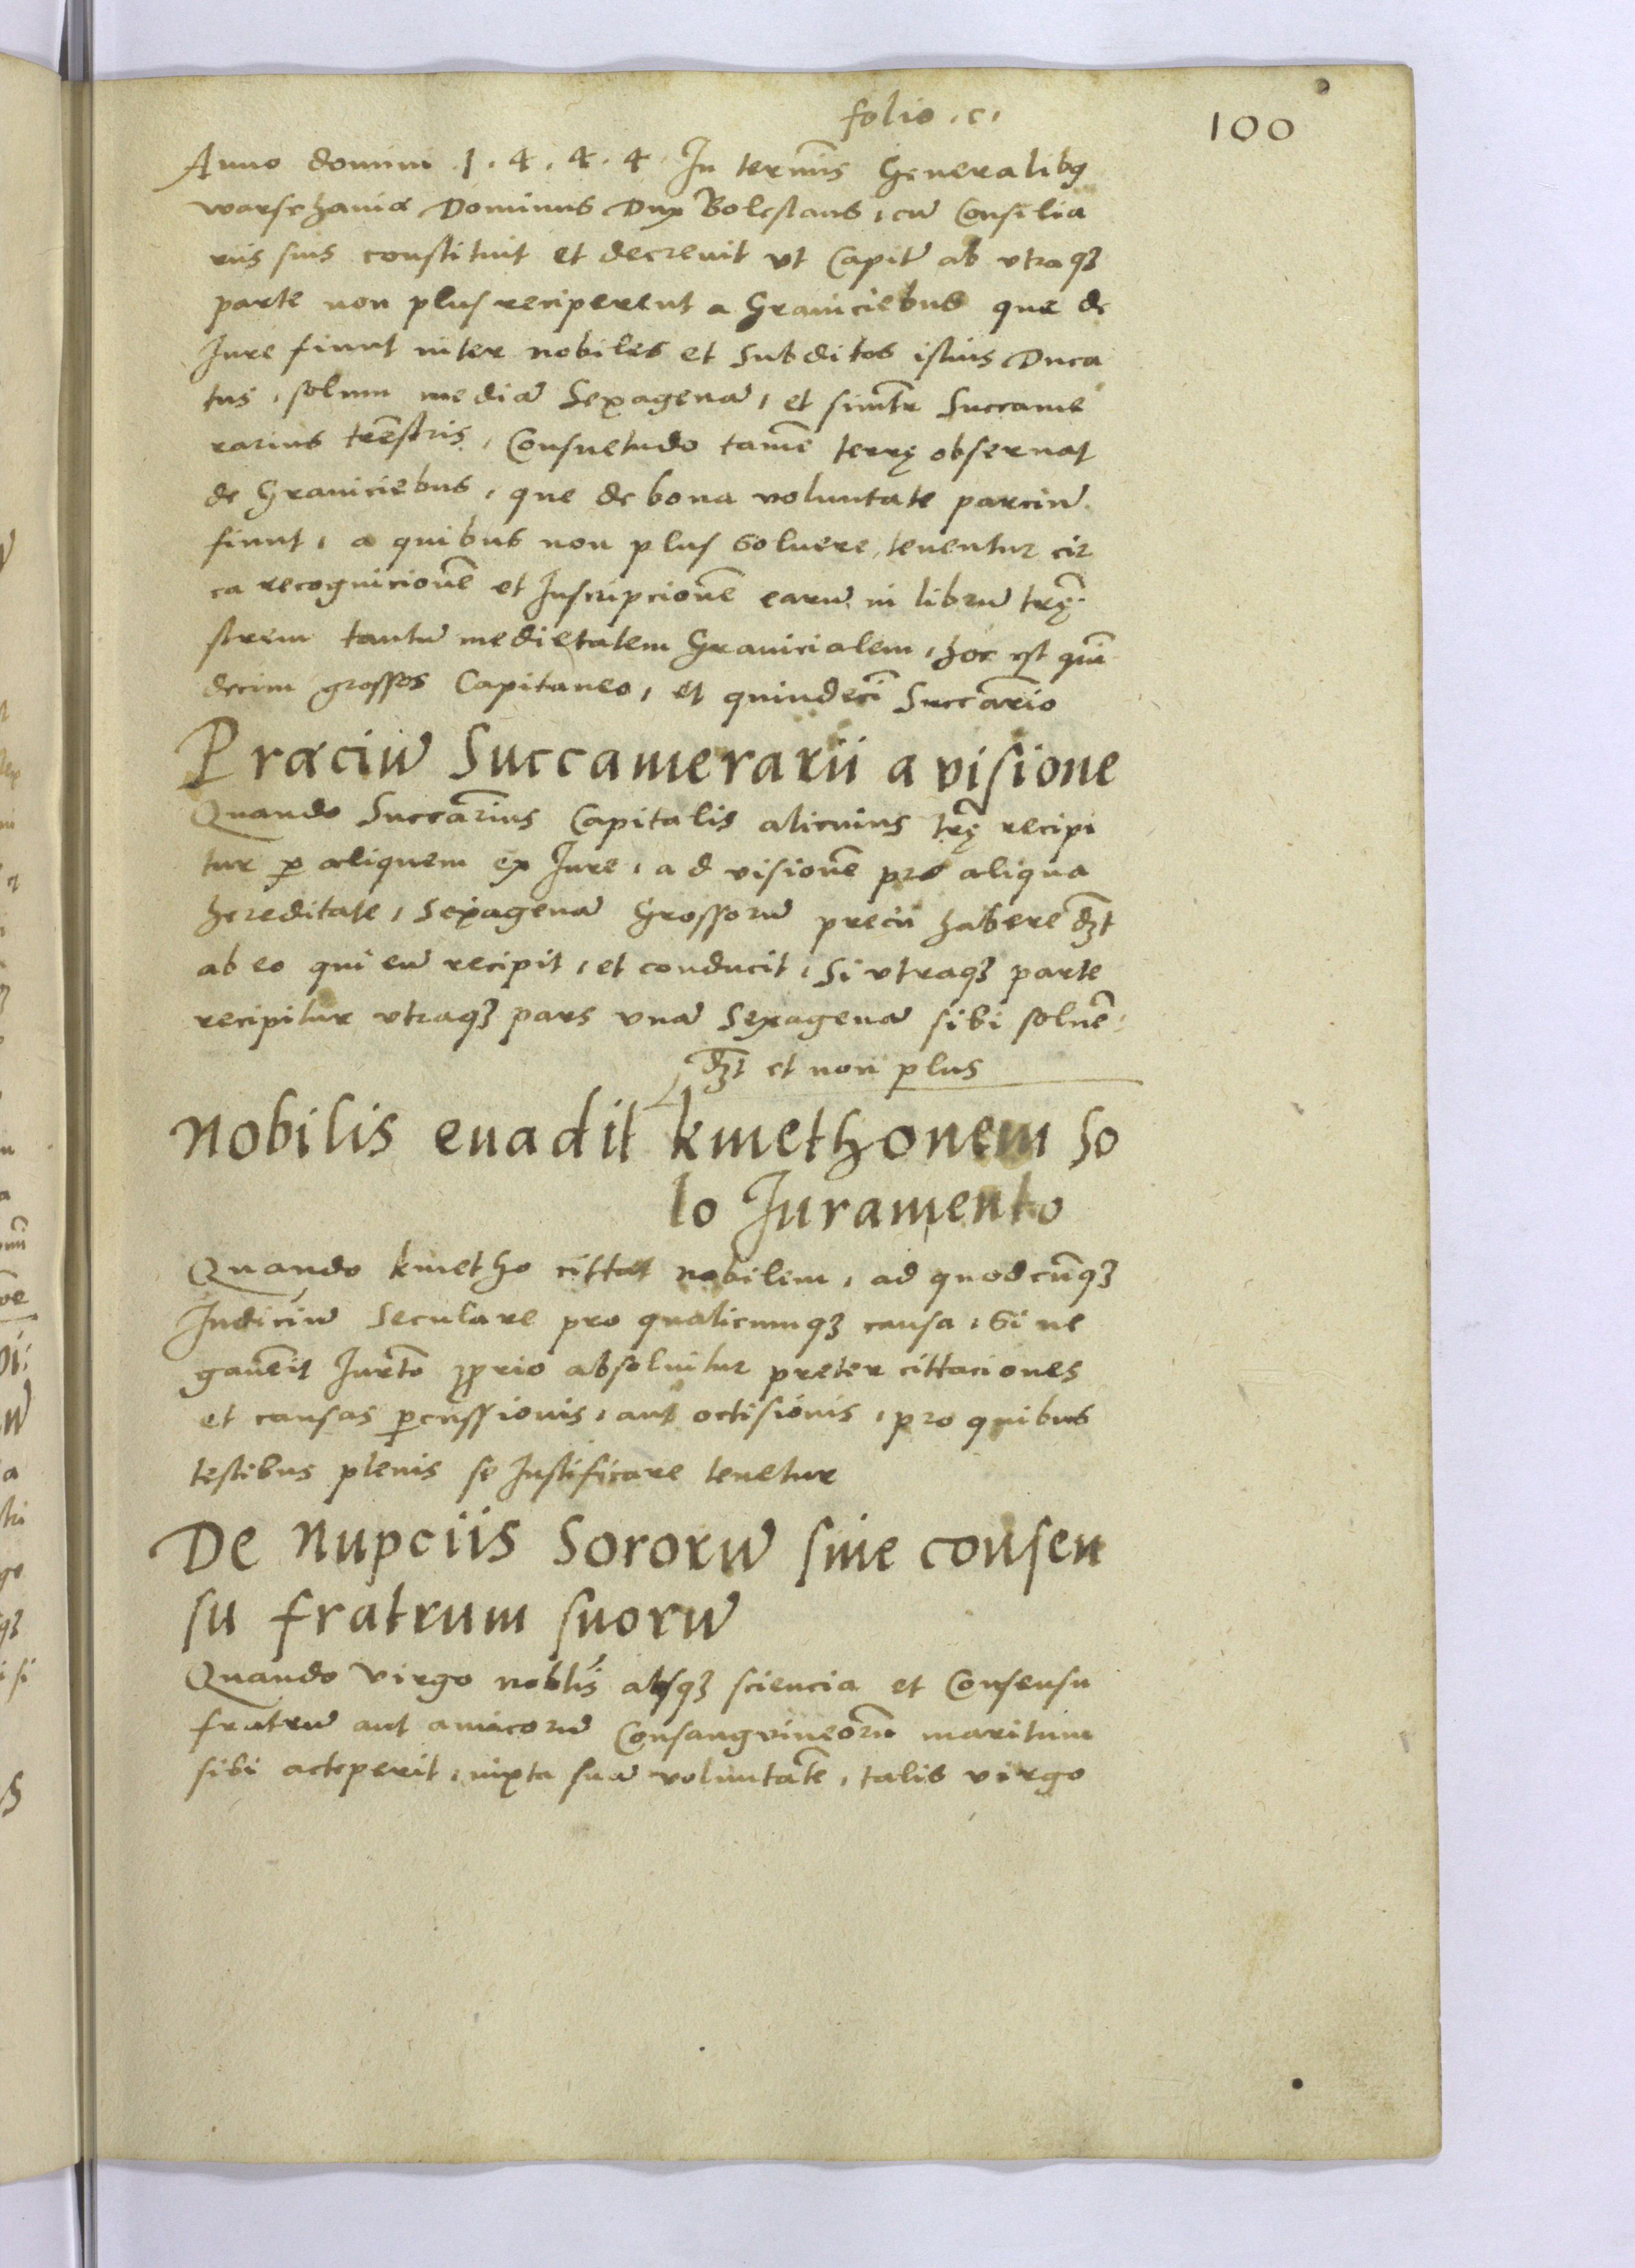 folio . c .
100
Anno domini 1 . 4 . 4 . 4 In termīs Generalibꝯ
warschaviæ Dominus Dux Bolesłaus, cū Consilia
riis suis constituit et decrevit vt Capitꝰ ab vtraqꝫ
parte non plus reciperent a Graniciebus que de
Iure fiunt inter nobiles et subditos istius Duca
tus, solum mediā Sexagenā, et simltr Succame
rarius trēstris, Consuetudo tamē terrę observat
de Graniciebus, que de bona voluntate parciū
fiunt, a quibus non plus solvere tenentur cir
ca recognicionē et Inscripcionē earū in librū trę̄
strem tantū medietatem Granicialem, hoc est qui̅
decim grossos Capitaneo, et quindeci̅ Succārio
Præciū Succamerarii a visione
Quando Succārius Capitalis alicuius tr̄ę recipi
tur ꝑ aliquem ex Iure, ad visionē pro aliqua
hereditate, Sexagenā Grossorū precii habere dꝫt
ab eo qui eū recipit, et conducit, Si vtraqꝫ parte
recipitur vtraqꝫ pars vnā Sexagenā sibi solvē
dꝫt et non plus
Nobilis evadit kmethonem so
lo Iuramento
Quando kmetho cittat nobilem, ad quodcūqꝫ
Iudiciū Seculare pro qualicumqꝫ causa, Si ne
gavēit Iurto ꝓprio absolvitur preter cittaciones
et causas ꝑcussionis, aut occisionis, pro quibus
testibus plenis se Iustificare tenetur
De Nupciis Sororū sine consen
su fratrum suorū
Quando virgo noblis absqꝫ sciencia et Consensu
fratrū aut amicorū Consangvineorū maritum
sibi acceperit, iuxta suā voluntatē, talis virgo